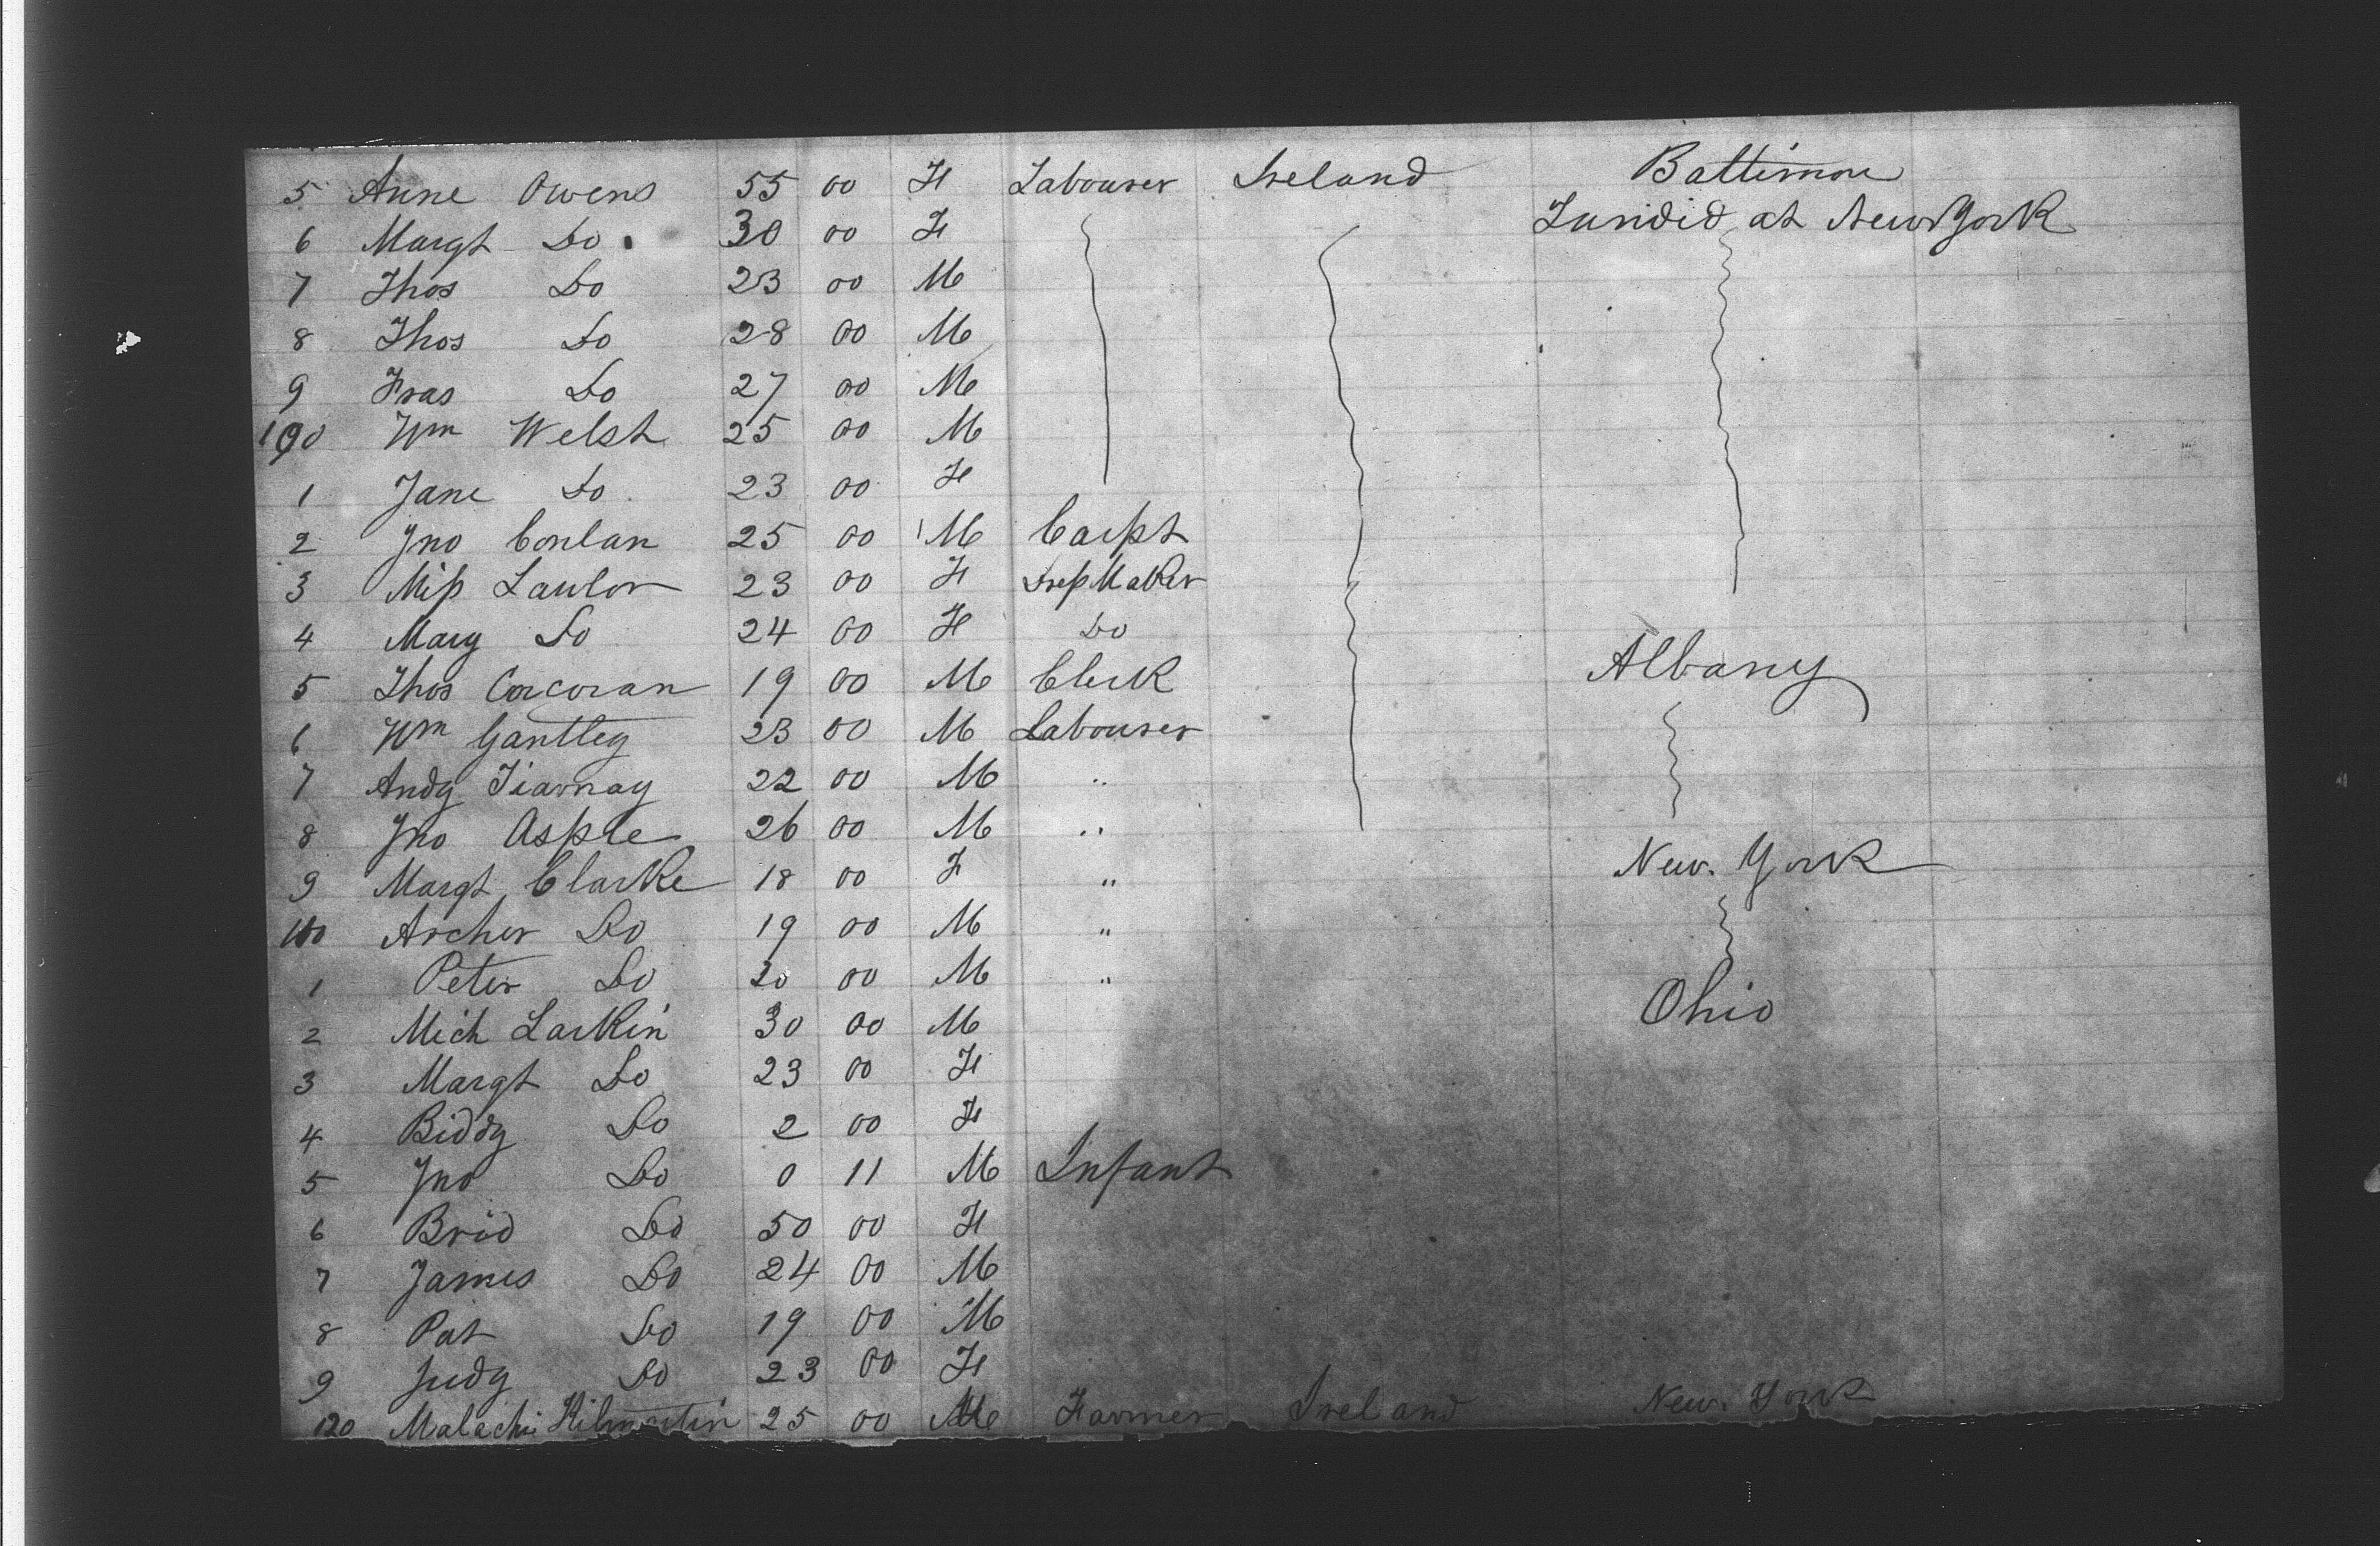 5 Anne Owens 55 00 F Labourer Ireland Baltimore
6 Margt Do 30 00 F Landid at New York
7 Thos Do 23 00 M
8 Thos Do 28 00 M
9 Fras Do 27 00 M
100 Wm Welsh 25 00 M
1 Jane Do 23 00 F
2 Jno Conlan 25 00 M Carpt
3 Miss Lawlor 23 00 F Dress Maker
4 Mary Do 24 00 F Do
5 Thos Corcoran 19 00 M Clerk Albany
6 Wm Gantley 23 00 M Labourer
7 Andy Tiarnay 22 00 M "
8 Jno Asple 26 00 M "
9 Margt Clarke 18 00 F " New. York
110 Archer Do 19 00 M "
1 Peter Do 20 00 M "
2 Mich Larkin 30 00 M Ohio
3 Margt Do 23 00 F
4 Biddy Do 2 00 F
5 Jno Do 0 11 M Infant
6 Brid Do 50 00 F
7 James Do 24 00 M
8 Pat Do 19 00 M
9 Judy Do 23 00 F
120 Malachi Kilmartin 25 00 M Farmer Ireland New. York